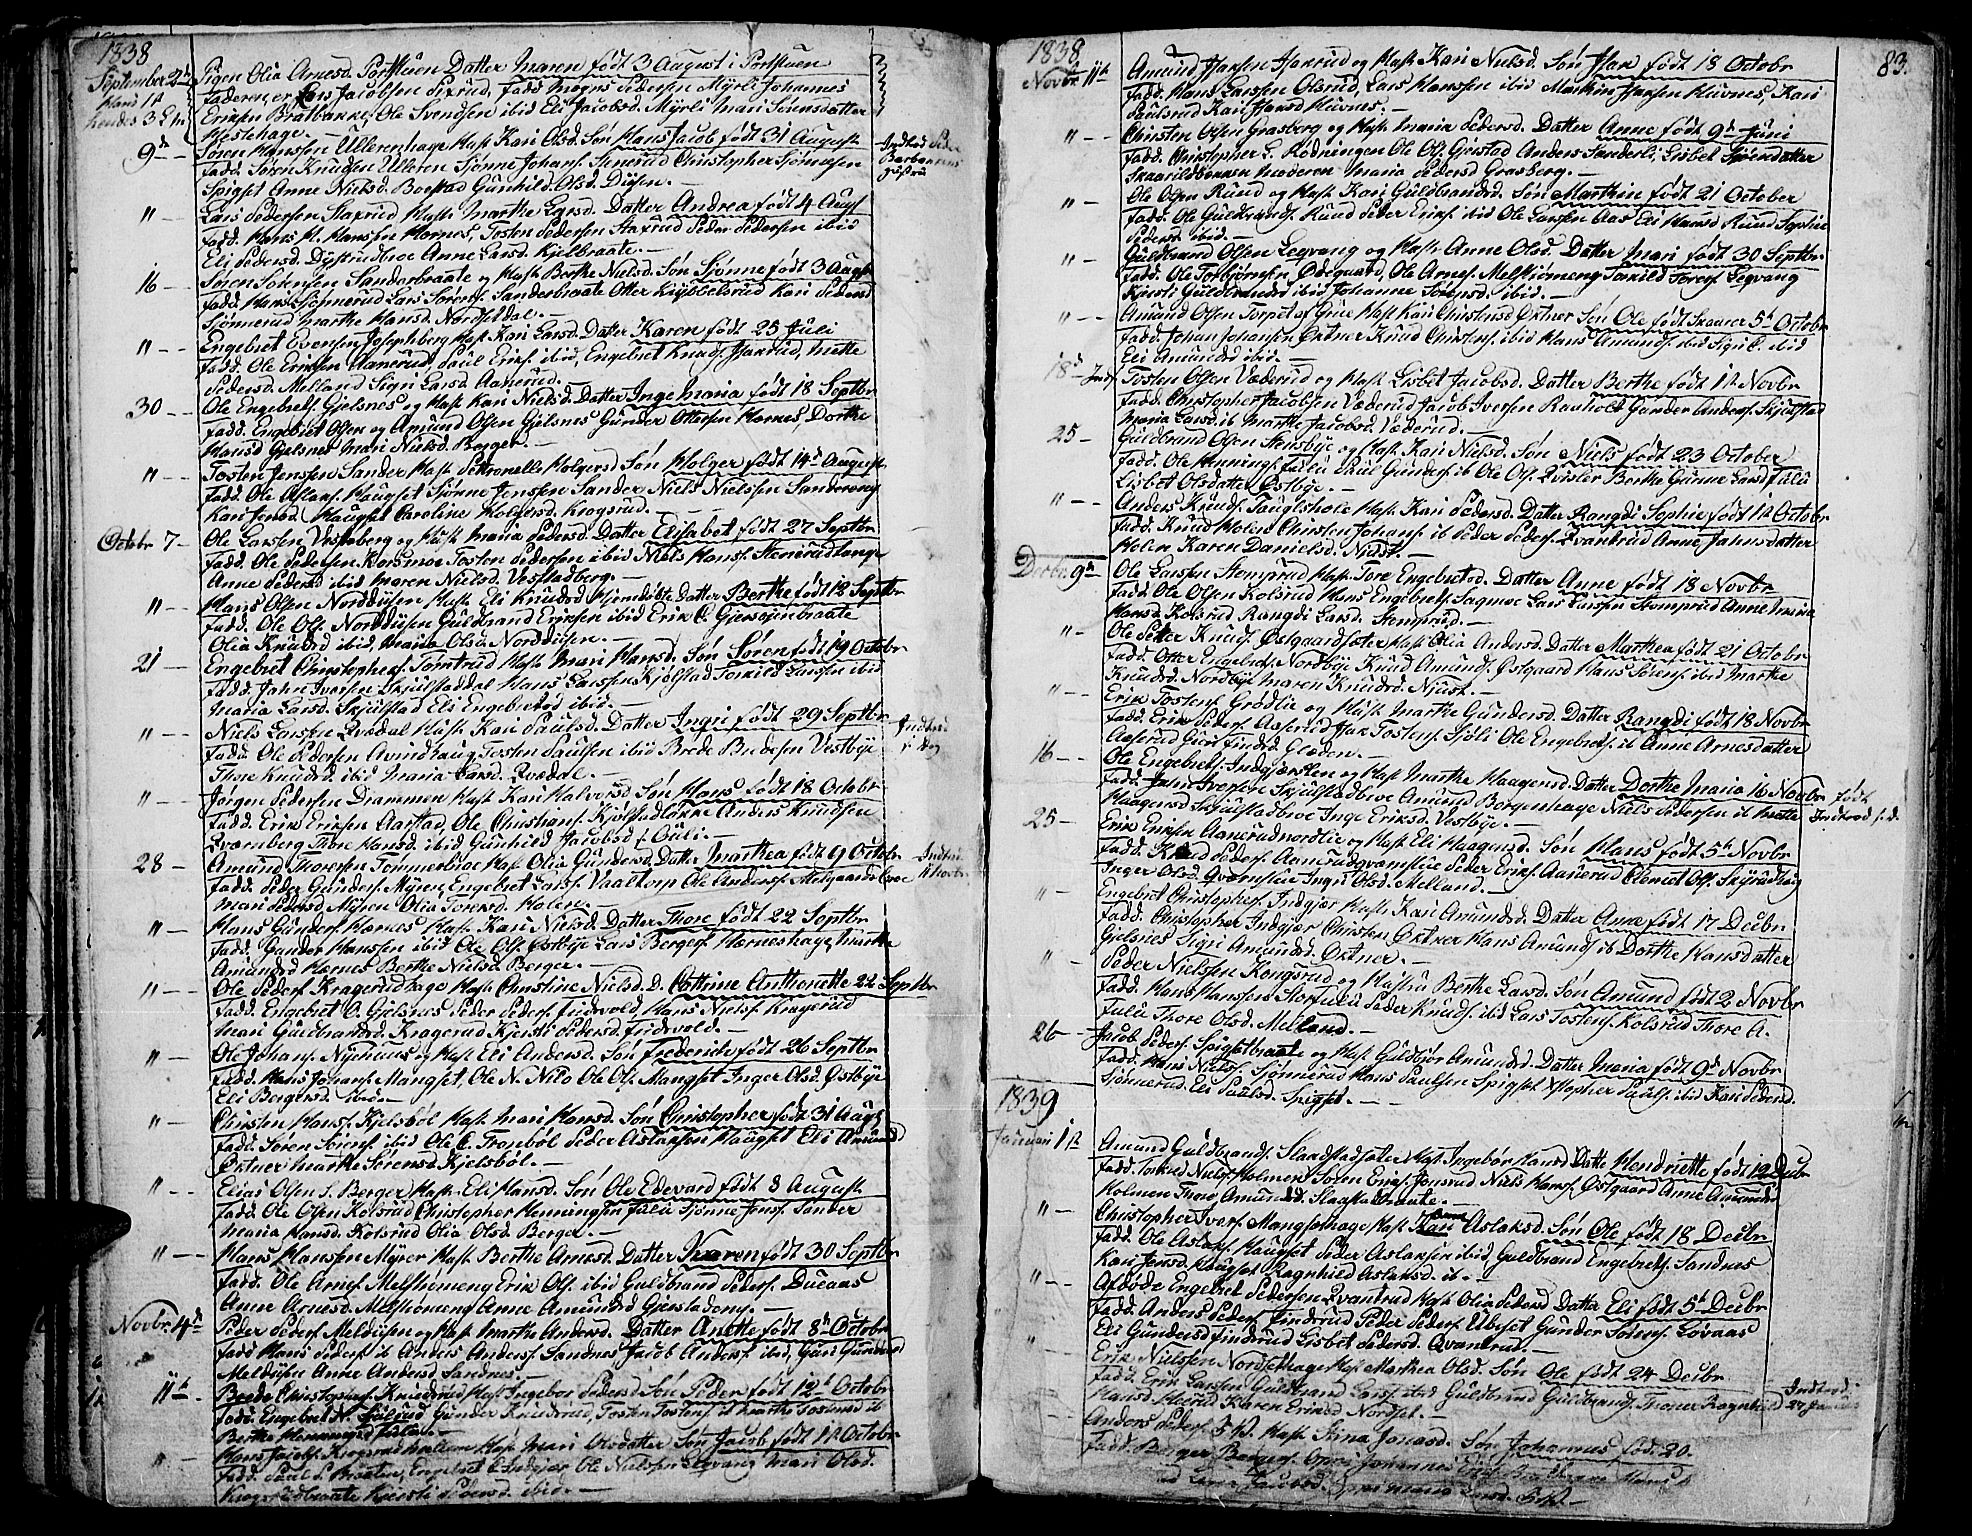 1838
September 2den Pigen Olia Arnesd. Portstuen Datter Maren født 3 August i Portstuen
Faderen er Lars Jacobsen Fadd. Mogns Pedersen Myrli Johannes
Eriksen Bratbakke, Ole Svendsen ibid Eli Jacobsd. Myrli Mari Svensdatter
9d Søren Hanssen Ullerenhage Hust. Kari Olsd. Søn Hans Jacob født 31 August
Fadd. Søren Knudsen Ulleren Sjønne Johans. Christopher Sjønnesen
Spigset Anne Nielsd. Borstad Gunhild Olsd. Disen.
" Lars Pedersen Staxrud Hust. Marthe Larsd. Datter Andrea født 4 Aug
Fadd. Hans H. Hanssen Hornes, Tosten Pedersen Staxrud Peder Pedersen ibid
Eli Pedersd. Anne Larsd. Kjølbraate.
16 Søren Sørensen Sanderbraate og Hust. Berthe Nielsd. Søn Sjønne født 3 August
Fadd. Hans Sjønnerud Lars Sørens. Sanderbraate Otter Kari Pedersd
Sjønnerud Marthe Hansd. Nordsetdal.
" Engebret Evensen Josephberg Hust. Kari Larsd. Datter Karen født 25 Juli
Fadd. Ole Eriksen Aanerud, Paul Eriks. ibid, Engebret Knuds. Haxrud, Mette
Pedersd. Melland Sigri Larsd. Aanerud.
30 Ole Engebrets. Gjelsnes og Hust. Kari Nielsd. Datter Inge Maria født 18 Septbr
Fadd. Engebret Olsen og Amund Olsen Gjelsnes Gunder Ottersen Hornes, Dorthe
Hansd Gjelsnes Mari Nielsd. Berger.
" Tosten Jenssen Sander Hust. Petronelle Holgersd Søn Holger født 14d August
Fadd. Ole Aslaks. Haugset Sjønne Jenssen Sander Niels Nielssen Sandereng
Kari Jensd. Haugset Caroline Holgersd. Krogsrud.
Octobr 7 Ole Larssen Vestaberg og Hust. Maria Pedersd. Datter Elisabet født 27 Septbr
Fadd. Ole Pedersen Korsmoe Tosten Pedersen ibid Niels Hans.
Anne Pedersd ibid Maren Nielsd. Vestadberg.
" Hans Olsen Norddisen Hust. Eli Knudsd Hjemdøbte Datter Berthe født 12 Septbr
Fadd. Ole Ols. Norddisen Guldbrand Eriksen ibid Erik C. Gjersøienbraate
Olia Knudsd ibid, Maria Olsd. Norddisen.
21 Engebret Christophers. Tomtrud Hust. Mari Hansd. Søn Søren født 19 Octobr
Fadd. Jahn Iversen Skjulstaddal Hans Larssen Kjølstad Torkild Larssen ibid
Maria Larsd. Skjulstad Eli Engebretsd ibid.
" Niels Larssen Qvædal Hust. Kari Paulsd. Datter Ingri født 29 Septbr
Fadd. Ole Pedersen Avindhaug Tosten Paulsen ibid Brede Bredesen Vestbye
Thore Knudsd. ibid Maria Larsd. Qvædal.
" Jørgen Pedersen Drammen Hust. Kari Halvorsd Søn Hans født 18 Octobr
Fadd. Erik Eriksen Aarstad, Ole Christians. Kjølstadløkke Anders Knudsen
Qvernberg Thore Hansd. ibid Gunhild Jacobsd
28 Amund Thoresen Tømmerbroe Hust. Olia Gundersd. Datt. Marthea født 9 Octobr
Fadd. Peder Gunders. Myren, Engebret Larss. Vaaltorp Ole Anderss.
Mari Pedersd. Mysen Olia Toresd Holen.
" Hans Gunders. Hærnes Hust. Kari Nielsd. Datter Thore født 22 Septbr
Fadd. Gunder Hanssen ibid Ole Ols. Østbye Lars Bergers. Horneshage Marthe
Amundsd Hærnes Berthe Nielsd. Berger.
" Ole Peders. Kragerudhage Hust. Christine Nielsd. D. Cattrine Anthonette 22 Septbr
Fadd. Engebret O. Gjelsnes Peder Peders. Findvold Hans Niels. Kragerud
Mari Guldbrandsd. Kragerud Kjersti Pedersd. Findvold.
" Ole Johans. Nyehuus og Hust. Eli Andersd. Søn Frederich født 26 Septbr
Fadd. Hans Johans. Mangset, Ole N. Nilo Ole Ols. Mangset Inger Olsd. Østbye
Eli Bergersd. ibid.
" Christen Hans. Kjelsbøl Hust. Mari Hansd. Søn Christopher født 31 Aug
Fadd. Søren Sørens. ibid Ole C. Tronbøl Peder Aslaksen Haugset Eli Amundsd
Øktner Marthe Sørensd. Kjelsbøl.
" Elias Olsen S. Berger Hust. Eli Hansd. Søn Ole Edevard født 8 August
Fadd. Ole Olsen Kolsrud Christopher Henningsen Fulu Sjønne Jens. Sander
Maria Hansd. Kolsrud Olia Olsd. Berger.
" Hans Hanssen Myrer Hust. Berthe Arnesd. Datter Karen født 30 Septbr
Fadd. Ole Arnes. Melstiomeng Erik Ols. ibid Guldbrand Peders. Ducaas
Anne Arnesd. Melstiomeng Anne Amundsd Gjerstadeng.
Novbr. 4d Peder Peders. Meldisen og Hust. Marthe Andersd. Datter Anette født 8d Octobr
Fadd Hans Peders. ib Anders Anders. Sandnes, Jacob Anders. ibid, Guri Gundersd
Meldisen Anne Andersd. Sandnes.
11te Brede Christophers. Knudsrud Hust Ingebor Pedersd Søn Peder født 12te Octobr
Fadd. Engebret N. Gunder Knudsrud, Tosten Tostens. ib Marthe Tostensd ib
Berthe Henningsd Fulu.
" Hans Jacobs. Krogsrud Hust. Mari Olsdatter Søn Jacob født 1te Octobr
Fadd. Paul S. Braaten, Engebret C. Indgjer, Ole Nielsen Legvang Mari Olsd.
Krogsrudbraate Kjersti Pedersd. ibid.
Indtroducert f: dag
1838 83.
Novbr. 11te Amund Haxrud og Hust. Kari Nielsd. Søn født 18 Octobr
Fadd. Hans Larssen Olsrud, Lars Hanssen ibid Marthin Huvnes, Kari
Paulsrud Kari Huvnes.
" Christen Olsen Grasberg og Hust. Maria Pedersd. Datter Anne født 9d Juni
Fadd. Christopher L. Rødningen Ole Ols. Gjerstad Anders Sønderli Lisbet Sjønsdatter
Skaarildbakken Moderen Maria Pedersd Grasberg.
" Ole Olsen Rund og Hust. Kari Guldbrandsd. Søn Marthin født 21 October
Fadd. Ole Guldbrands. Rund Peder Eriks. ibid Ole Larssen Aas Eli Hansd Rund Sophie
Pedersd. ibid.
" Guldbrand Olsen Legvang og Hust. Anne Olsd. Datter Mari født 30 Septbr
Fadd. Ole Torbjørnsen Ødegaard, Ole Arnes. Melstiomeng Torkild Tores. Legvang
Kjersti Guldbrandsd ibid Johanne Sørensd. ibid.
" Amund Olsen Torpet af Grue Hust. Kari Christensd Øktner Søn Ole født Skaarer 5te Octobr
Fadd. Johan Johansen Øktner Knud Christens. ibid Hans Amunds. ibid Sigri C. ibid
Eli Amundsd ibid.
18d Tosten Olsen Væderud og Hust. Lisbet Jacobsd. Datter Berthe født 1te Novbr
Fadd. Christopher Jacobsen Væderud Jacob Iversen Ravholt Gunder Anders. Skjulstad
Maria Larsd. ib Marthe Jacobsd. Væderud.
25 Guldbrand Olsen Stensbye og Hust. Kari Nielsd. Søn Niels født 23 October
Fadd. Ole Hennings. Fullu Paul Gunders. ib Ole Ols. Qvisler Berthe Gunne Larsd. Fulu
Lisbet Olsdatter Østbye.
" Anders Knuds. Fauglshole Hust. Kari Pedersd. Datter Rangdi Sophie født 1te Octobr
Fadd. Knud Holen Christen Johans. ib Peder Peders. Qvantrud Anne Jahnsdatter
Holen Karen Danielsd. Niust.
Decbr. 9de Ole Larssen Stemsrud Hust. Tore Engebretsd. Datter Anne født 18 Novbr
Fadd. Ole Olsen Kolsrud Hans Engebrets. Sagmoe Lars Larssen Stomsrud Anne Maria
Hansd. Kolsrud Rangdi Larsd. Stemsrud.
" Ole Petter Knuds. Østgaardsæter Hust. Olia Andersd. Datter Marthea født 21 Octobr
Fadd. Otter Engebrets. Nordbye Knud Amunds. Østgaard Hans Sørens. ibid Marthe
Knudsd. Nordbye Maren Knudsd. Njust.
" Erik Tostens. Grødlie og Hust. Marthe Gundersd. Datter Rangdi født 18 Novbr
Fadd. Erik Peders. Aaserud Tostens. Ole Engebrets. ib Anne Arnesdatter
Aaserud Guri Findsd. Gloaden.
16 Ole Engebrets. Indgjærslen og Hust. Marthe Haagensd. Datter Dorthe Maria 16 Novbr. født
Fadd. Jahn Iversen Skjulstadbroe Amund Bergershage Niels Pedersen ib Mette
Haagensd Skjulstadbroe Inge Eriksd. Vestbye.
25 Erik Eriksen Aanerudnordlie og Hust. Eli Haagensd. Søn Hans født 5te Novbr
Fadd. Knud Peders. Aanerudqvæmslie Peder Eriks. Aanerud Clemet Ols. Skyrudhaug
Inger Olsd. Qvæmslie Ingri Olsd. Melland.
" Engebret Christophs. Indgjær Hust. Kari Amundsd. Datter Anne født 17 Decbr
Fadd. Christopher Indgjær Christen Øktner Hans Amunds. ib Dorthe Hansdatter
Gjelsnes Sigri Amundsd. Øktner.
" Peder Nielssen Kongsrud og Hustru Berthe Larsd. Søn Amund født 2 Novbr
Fadd. Hans Hanssen Peder Knuds. ibid Lars Tostens. Kolsrud Thore A.
Fulu Thore Olsd. Melland.
26 Jacob Peders. Spigsetbraate og Hust. Guldbjør Amundsd. Datter Maria født 9d Novbr
Fadd. Hans Niels. Sjønnerud Hans Paulsen Spigset Xstopher Pauls. ibid Kari Pedersd.
Sjønnerud Eli Paulsd. Spigset.
1839
Januari 1te Amund Guldbrands. Slaastadsæter Hust. Ingebor Hansd Datter Hendriette født 12 Decbr
Fadd. Torkild Niels. Holmen Soren Eriks. Jonsrud Niels Hans. Østgaard Anne Amundsd
Holmen Thore Amundsd. Slaastadbraate.
" Christopher Ivers. Mangsethage Hust. Kari Aslaksd. Søn Ole født 18 Decbr
Fadd. Ole Aslaks. Haugset Peder Aslaksen ibid Guldbrand Engebrets. Sandnes
Kari Jensd. Haugset Ragnhild Aslaksd. ib.
" Afdøde Engebret Pedersen Qvantrud Hust. Olia Pedersd Datter Eli født 5te Decbr
Fadd. Anders Peders. Findrud Peder Peders. Ulvset Gunder Løvaas
Eli Gundersd Findrud Lisbet Pedersd. Qvantrud.
" Erik Nielssen Nordsethage Hust. Marthea Olsd. Søn Ole født 24 Decbr
Fadd. Erik Larssen Guldbrand Lars. Guldbrand Guldbrands. Thoner Ragnhild
Hansd Karen Eriksd Nordset.
Anders Peders. Hust. Stina Jonasd. Søn Johannes fød. 20.
Fadd. Berger Johannes
Indtroducert 27 Januari